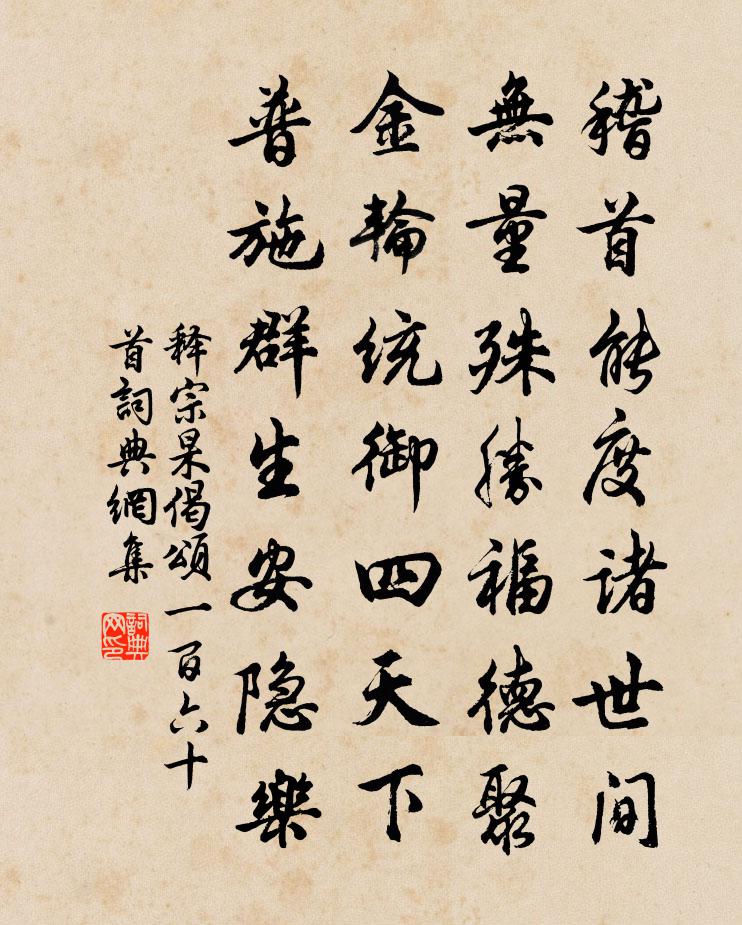 稽首能度诸世间
無量殊勝福德聚
金輪统御四天下
普施群生安隐樂
释宗杲偈頌一百六十
首詞典網集
詞典
网印